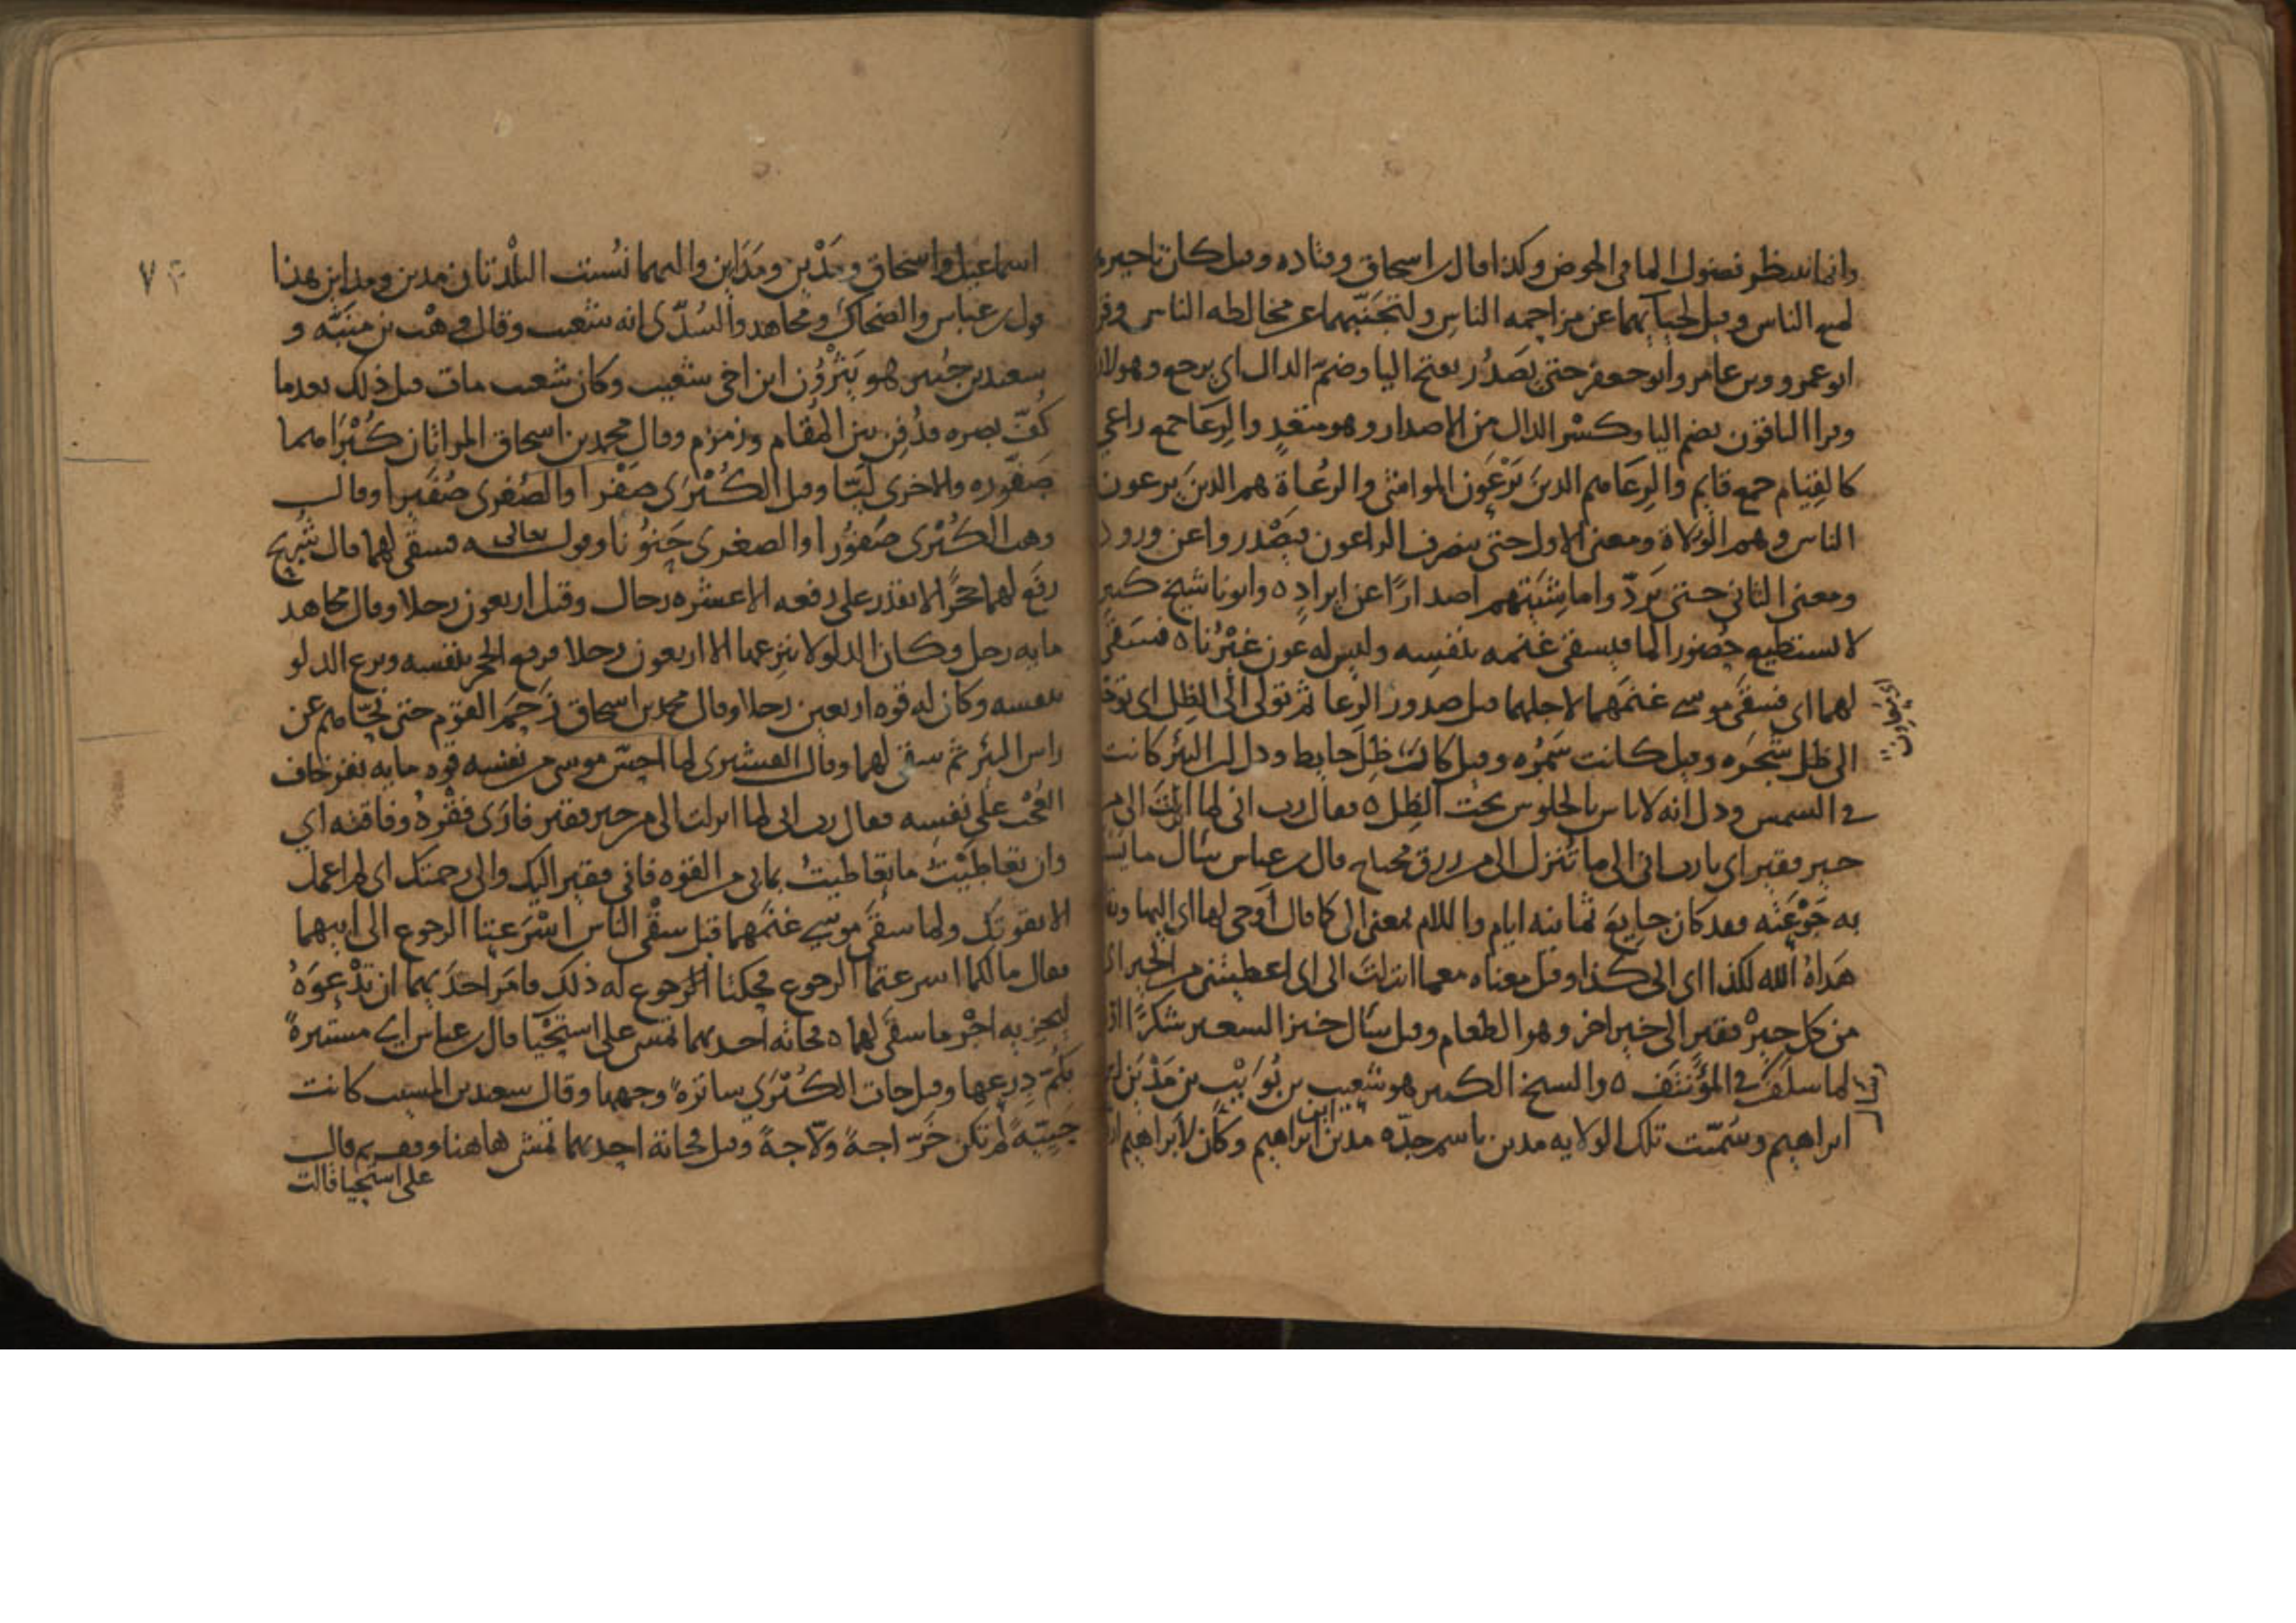 وانما ننتظر فضول الما في الحوض وكذا قال اسحاق وقتاده وقيل كان تاخيرهما
لهيبه الناس وقيل لحيائهما عن مزاحمه الناس ولتجنبهما عن مخالطه الناس وقرا
ابو عمرو وبن عامر وابو جعفر حتى يَصدُر بفتح اليا وضمّ الدال اي يرجع وهو لازم
وقرا الباقون بضم اليا وكسْر الدال من الاصدار وهو متعدٍ والرِعَا جمع راعي
كالقِيَام جمع قايم والرِعَا هم الذين يَرْعَون المواشى والرعُاة هم الذين يرعون
الناس وهم الوُلاة ومعنى الاول حتى ينصرف الراعون فيَصْدروا عن ورود
ومعنى الثاني حتى يَردّوا ماشيَتهم اصدارًا عن ايرادٍ ٥ وابونا شيخ كبير
لا يستطيع حُضور الما فيسقى غنمه بنفسِه وليس له عون غيْرُنا ٥ فسَقى
لهما اى فسقى موسى غنمَهما لاجلهما قبل صدور الرِعا ثم تولى الى الظِل اي
الى ظل شجَره وقيل كانت سَمُره وقيل كانت ظِلّ حايط ودل ان البئر كانت
في الشمس ودل انه لا باس بالجلوس تحت الظِل ٥ فقال رب انى لما انزلتَ الي من
خير فقير اي يا رب انى الى ما تُنزل الى من رزق محتاج قال بن عباس سَال ما
به جَوْعَته فقد كان جايعَ ثمانيه ايام واللام بمعنى الى كما قال أوحى لها اى اليها
هَداهُ الله لكذا اى الى كذا وقيل معناه مع ما انزلتَ الى اى اعطيتنى من الخير
من كل خيرْ فقير الى خير اخر وهو الطعام وقيل سَال خبز الشعير شكرًا
لما سلَفَ في المؤْتنَف ٥ والشيخ الكبير هو شعيب بن نُوَيْب بن مَدْيَن بن
ابراهيم وسُمّيت تلك الولايه مدين باسم جدّه مدين ابن ابراهيم وكان لابراهيم
اى يعاون
اسماعيل واسحاق ومَدْين ومَدَاين واليهما نُسبت البلْدتان مدين ومداين هذا
قول بن عباس والضحاك ومُجاهد والسُدّى انه شعيب وقال وهْب بن منَبّه و
سعيد بن جُبير هو يَثْرُوُن ابن اخى شعيب وكان شعيب مات قبل ذلك بعد ما
كُفّ بصره فدُفِن بين المقام وزمزم وقال محمد بن اسحاق المراتان كُبْرَاهما
صَفّوره والاخرى لَيّا وقيل الكُبْرَى صَفْرا والصُغرى صُفَيرا وقال
وهب الكُبْرى صَفُورا والصغرى حَنوُنا وقوله تعالى فسقى لهما قال شريح
رفَع لهما حَجرًا لا يقدر على رفعه الا عشره رجال وقيل اربعون رجلا وقال مجاهد
مايه رجل وكان الدلو لا ينزعها الا اربعون رجلا فرفع الحجر بنفسه ونزع الدلو
بنفسه وكان له قوه اربعين رجلا وقال محمد بن اسحاق زَحَم القوم حتى نحّاهم عن
راس البئر ثم سقى لهما وقال القشيرى لما احسّ موسى من نفسه قوه مايه نفر خاف
العُجْب على نفسِه فقال رب انى لما انزلت الى من خير فقير فارَى فقْرهُ وفاقته اي
وان تعاطيْتُ ما تعاطيتُ بما بى من القوه فانى فقير اليك والى رحمتك اى لم اعمل
الا بقوتِكَ ولما سقَى موسى غنمَهما قبل سقْي الناس اسْرَعتا الرجوع الى ابيهما
فقال ما لكما اسرعتما الرجوع فحكتا لَه ذلك فامَر احدَيهما ان تدْعوَهُ
ليجزيه اجْر ما سقى لهما ٥ فجائته احديهما تمشى على استِحْيا قال بن عباس اى مستترةً
بكُمّ دِرعها وقيل جات الكُبْرَي ساترةً وجهها وقال سعيد بن المسيب كانت
حَييّةً لم تكن خَرّاجةً ولّاجةً وقيل فجاته احديهما تمشى هاهنا وقف ثم قال
على استحيا قالت